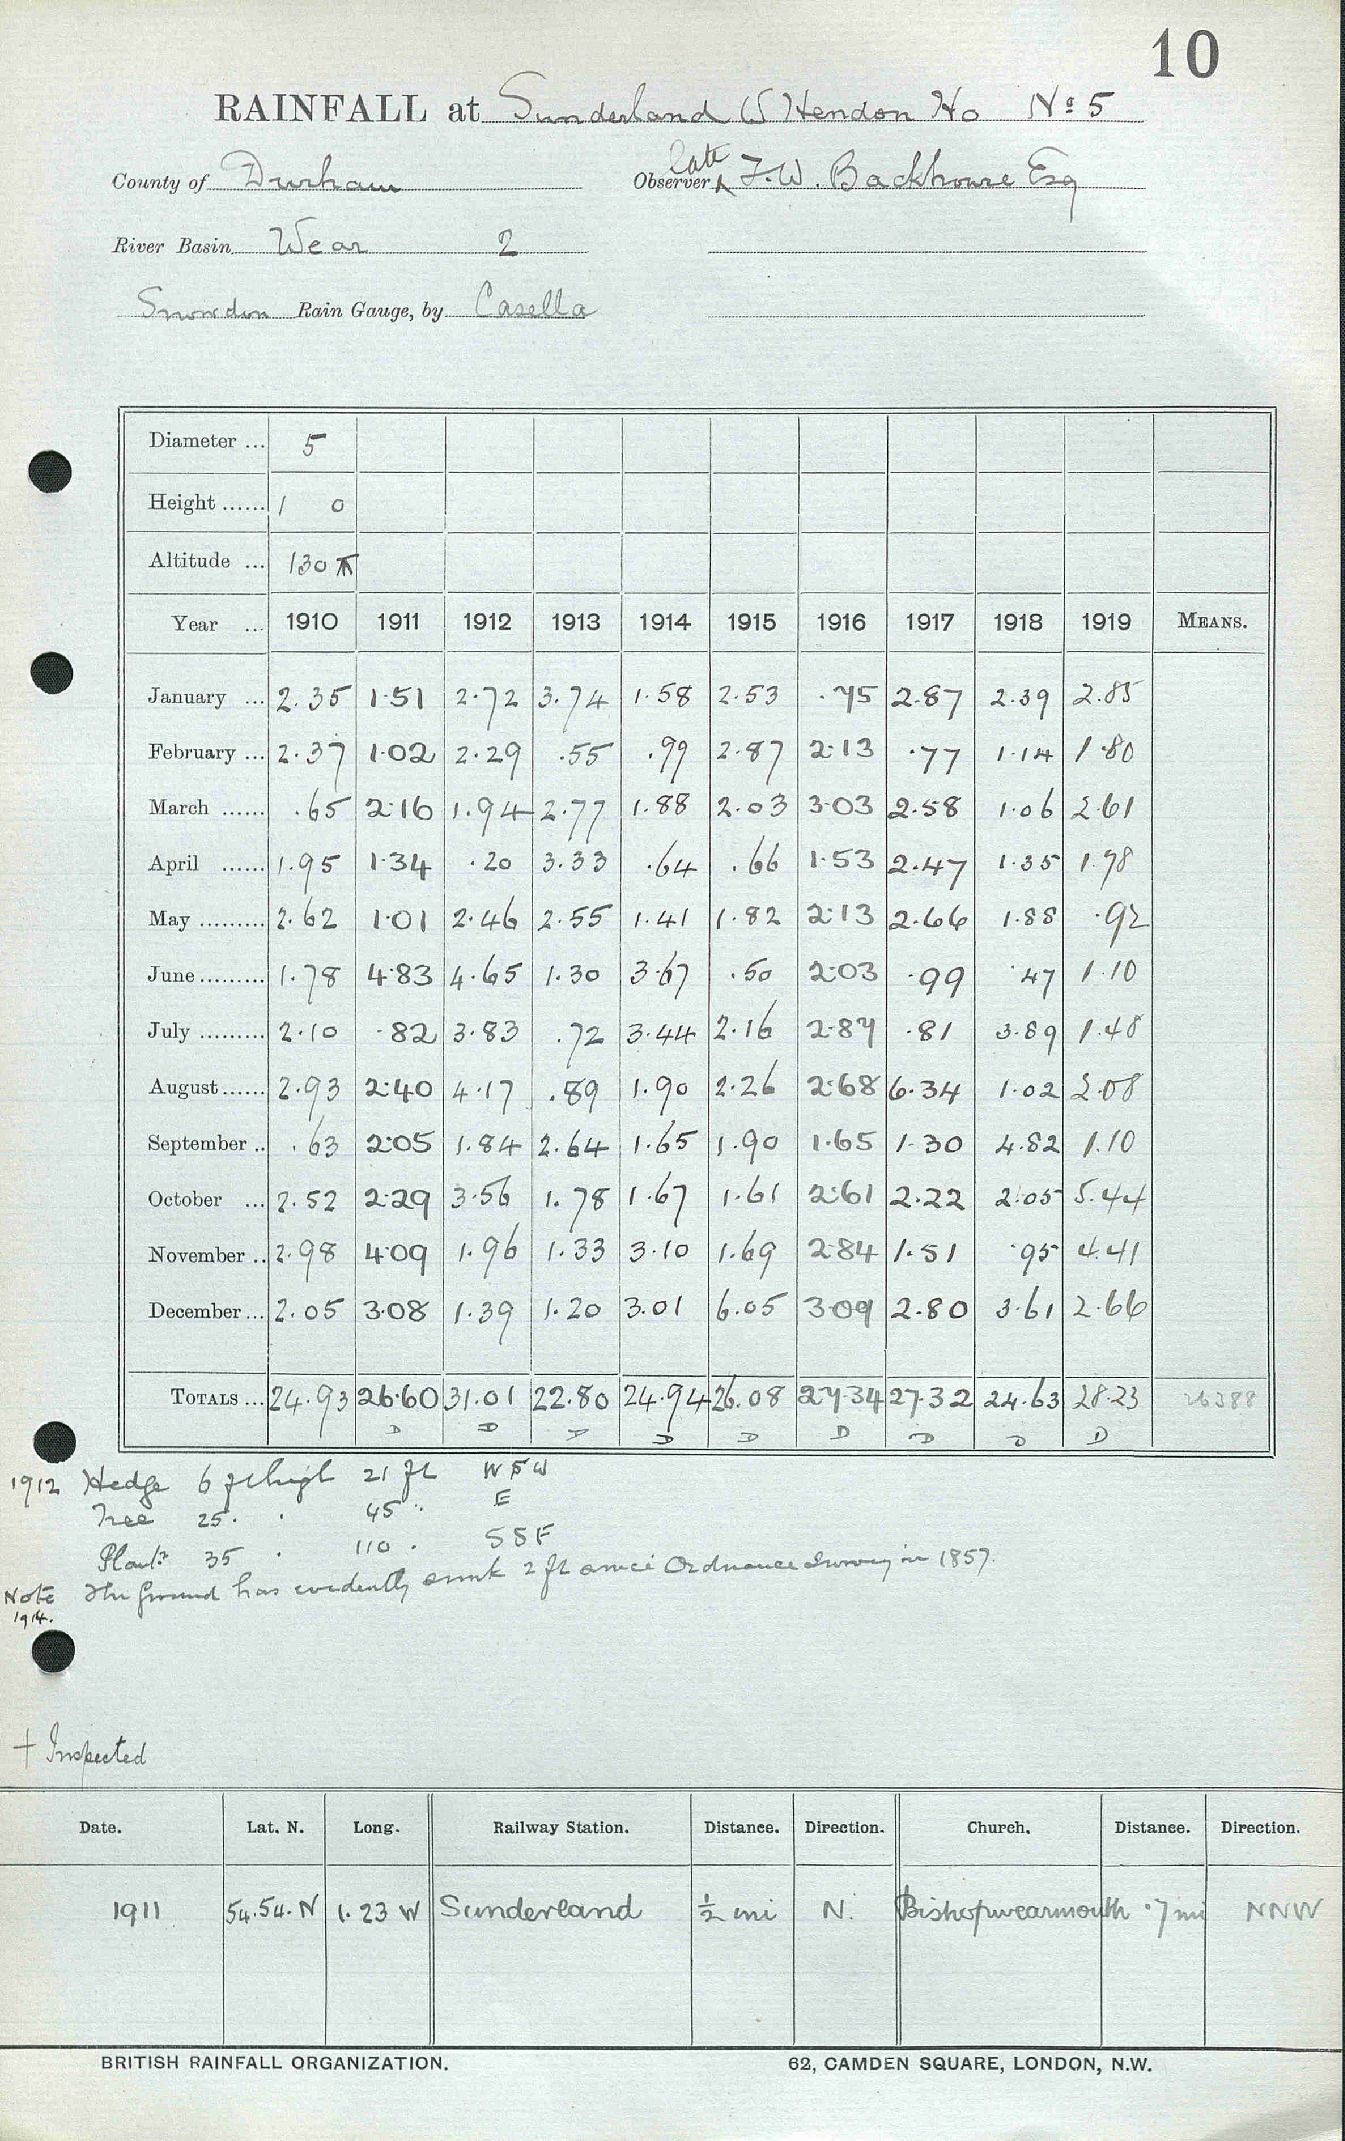 10
RAINFALL at Sunderland W Hendon Ho No 5
County of Durham Observer late T.W. Backhouse Esq
River Basin Wear 2
Snowdon Rain Gauge, by Casella
Diameter ... 5
Height ...... 1 0
Altitude ... 130 ft
Year ... 1910 1911 1912 1913 1914 1915 1916 1917 1918 1919 MEANS.
January ... 2.35 1.51 2.72 3.74 1.58 2.53 .75 2.87 2.39 2.85
February ... 2.37 1.02 2.29 .55 .99 2.87 2.13 .77 1.14 1.80
March ...... .65 2.16 1.94 2.77 1.88 2.03 3.03 2.58 1.06 2.61
April ...... 1.95 1.34 .20 3.33 .64 .66 1.53 2.47 1.35 1.78
May ......... 2.62 1.01 2.46 2.55 1.41 1.82 2.13 2.66 1.88 .92
June ......... 1.78 4.83 4.65 1.30 3.67 .50 2.03 .99 .47 1.10
July ......... 2.10 .82 3.83 .72 3.44 2.16 2.87 .81 3.89 1.48
August ...... 2.93 2.40 4.17 .89 1.90 2.26 2.68 6.34 1.02 2.08
September .. .63 2.05 1.84 2.64 1.65 1.90 1.65 1.30 4.82 1.10
October ... 2.52 2.29 3.56 1.78 1.67 1.61 2.61 2.22 2.05 5.44
November .. 2.98 4.09 1.96 1.33 3.10 1.69 2.84 1.51 .95 4.41
December ... 2.05 3.08 1.39 1.20 3.01 6.05 3.09 2.80 3.61 2.66
TOTALS ... 24.93 26.60 31.01 22.80 24.94 26.08 27.34 27.32 24.63 28.23 26388
D D D D D D D D D
1912 Hedge 6 ft high 21 ft WSW
Tree 25 . . 45 " E
Plantn 35 . 110 . SSE
Note The ground has evidently sunk 2 ft since Ordnance Survey in 1857.
1914.
+ Inspected
Date. Lat. N. Long. Railway Station. Distance. Direction. Church. Distance. Direction.
1911 54.54.N 1.23 W Sunderland ½ mi N. Bishopwearmouth .7 mi NNW
BRITISH RAINFALL ORGANIZATION. 62, CAMDEN SQUARE, LONDON, N.W.